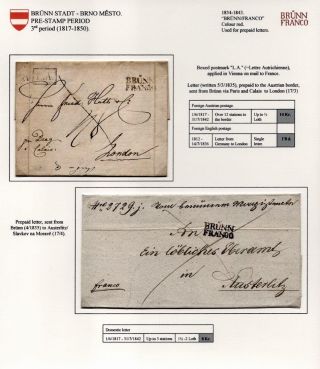 BRÜNN STADT - BRNO MĚSTO.
PRE-STAMP PERIOD
3rd period (1817-1850).
1834-1843.
"BRÜNN/FRANCO"
Colour red.
Used for prepaid letters.
BRÜNN
FRANCO
Boxed postmark "L.A." (=Lettre Autrichienne),
applied in Vienna on mail to France.
Letter (written 5/3/1835), prepaid to the Austrian border,
sent from Brünn via Paris and Calais to London (17/3)
L.A.
BRÜNN
FRANCO
London
p. Calais
Foreign Austrian postage
1/6/1817 -
31/7/1842
Over 12 stations to
the border
Up to ½
Loth
14 Kr.
Foreign English postage
1812 -
14/7/1836
Letter from
Germany to London
Single
letter
Prepaid letter, sent from
Brünn (4/1835) to Austerlitz/
Slavkov na Moravě (17/4)
BRÜNN
FRANCO
An
Ein löbliches Oberamt
in
franco
Austerlitz
Domestic letter
1/6/1817 - 31/7/1842
Up to 3 stations
6 Kr.